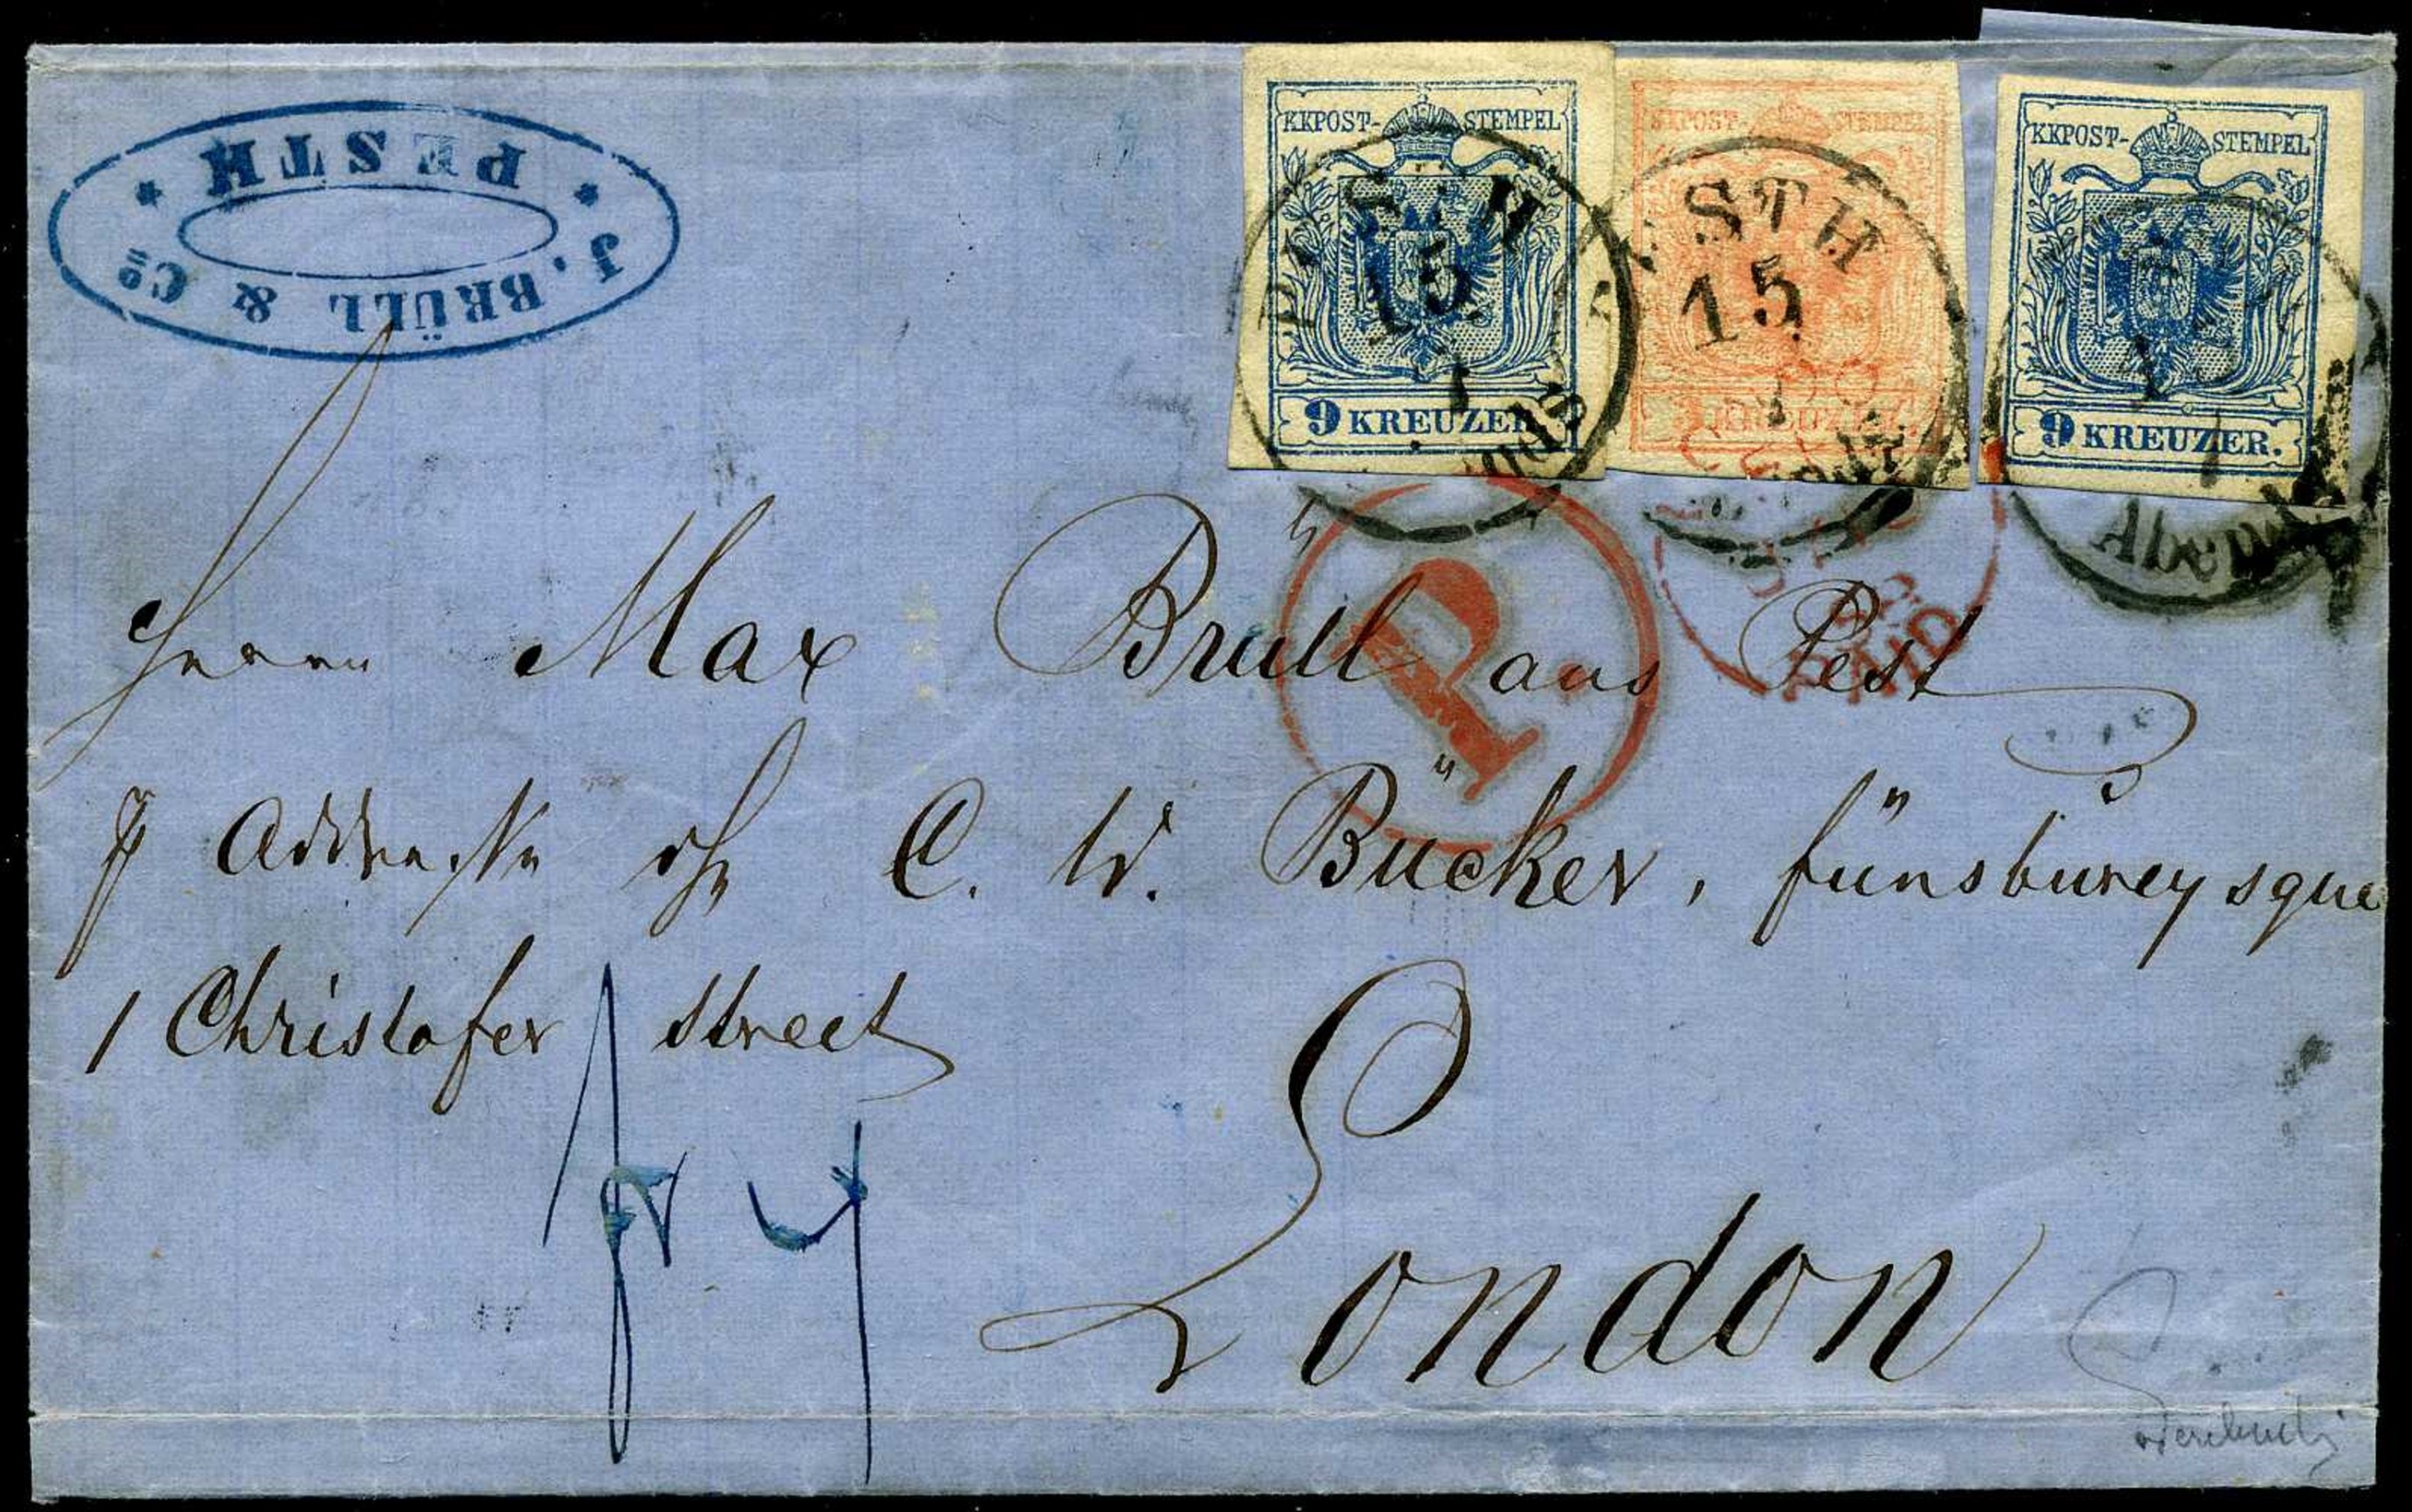 J. BRÜLL & Cº
* PESTH *
KKPOST-STEMPEL
9 KREUZER.
KKPOST-STEMPEL
KREUZER.
KKPOST-STEMPEL
9 KREUZER.
PESTH
15.
7
PESTH
15.
7
Abends
P
PAID
Herrn Max Brüll aus Pest
p Addresse C. W. Bücker, fünsburey sque
1 Christofer street
London